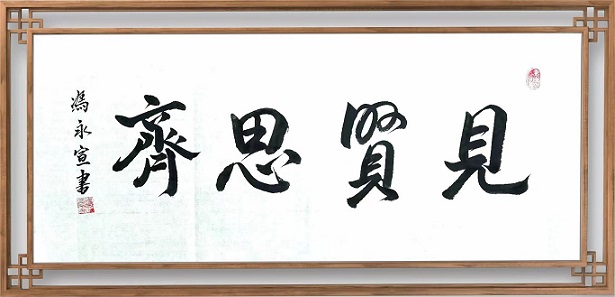 見賢思齊
馮永宣書